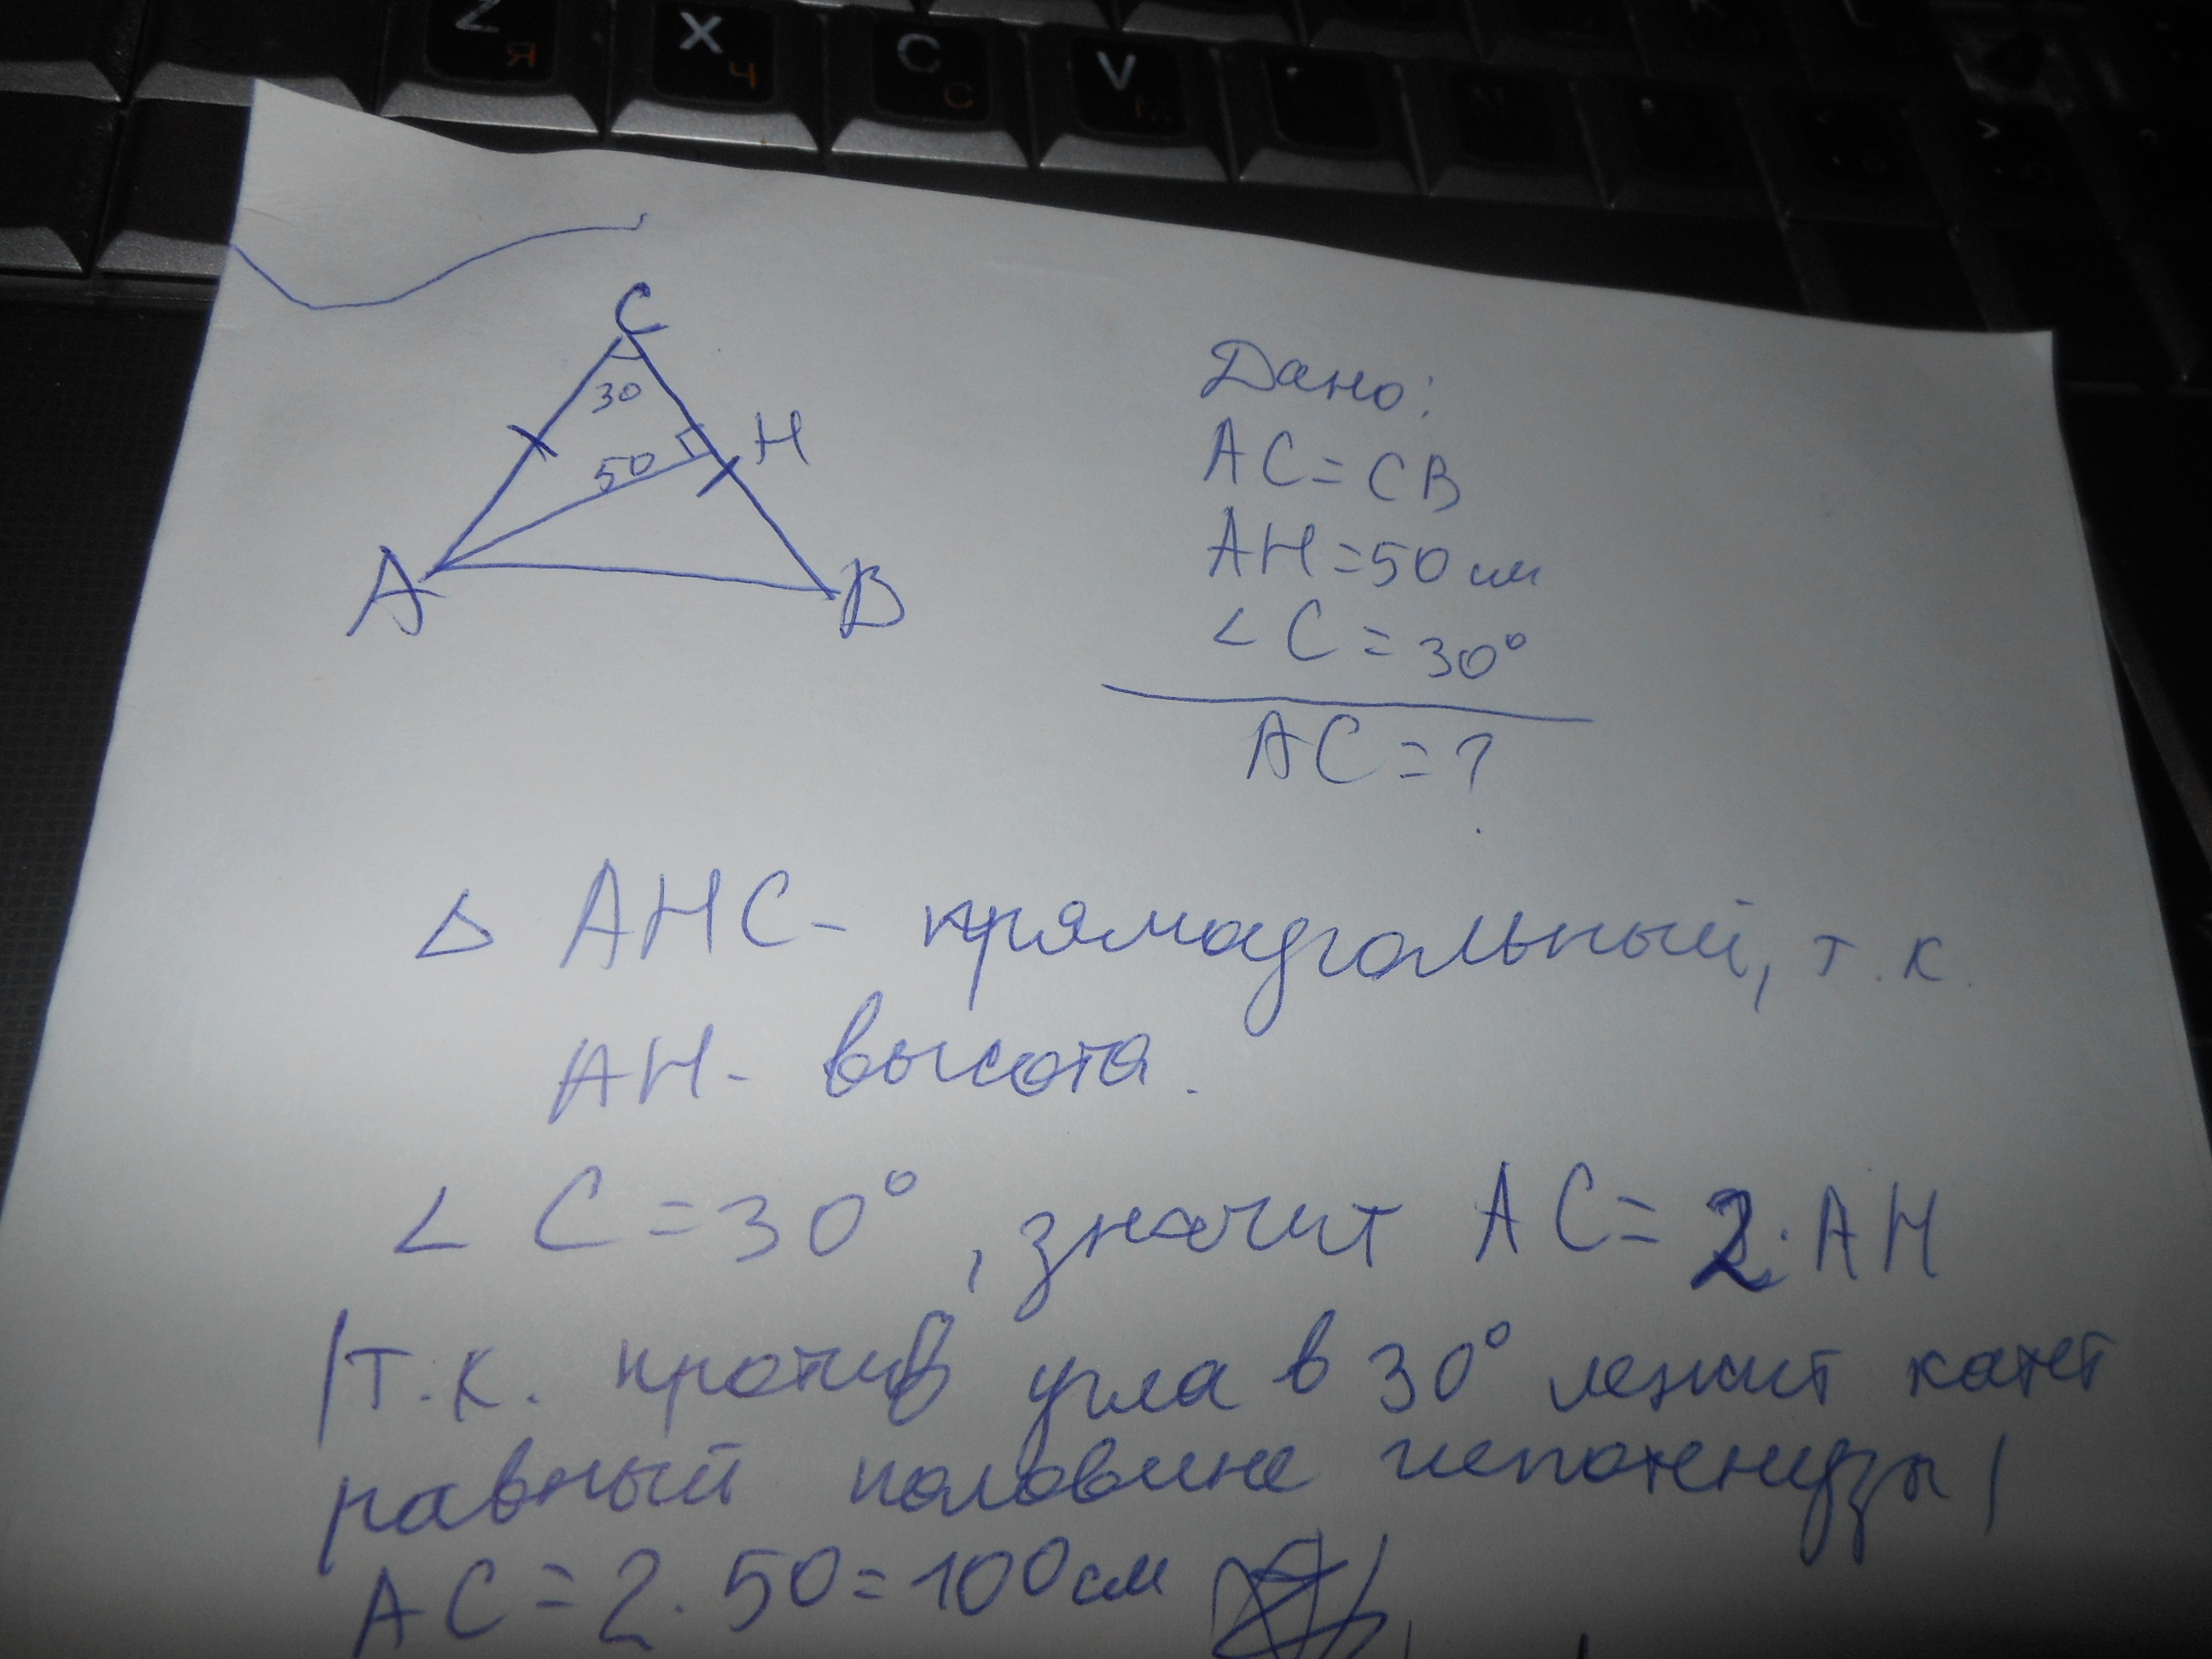 Z Я
X Ч
C С
V М
C
30
50
H
A
B
Дано:
AC=CB
AH=50 см
∠C=30°
AC=?
Δ AHC- прямоугольный, т.к
AH- высота.
∠ C=30°, значит AC=2·AH
/т.к. против угла в 30° лежит катет
равный половине гипотенузы/
AC=2·50=100см